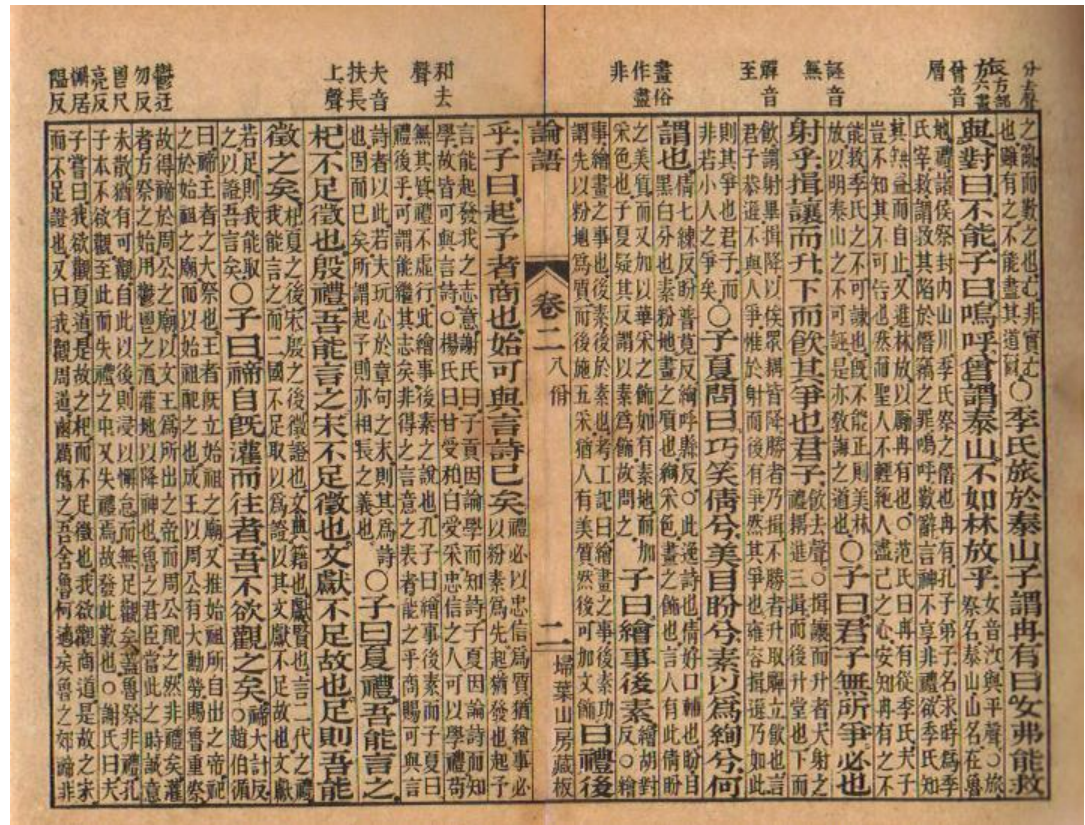 分去聲
旅方部六畫
曾音層
誣音無
解音至
畫俗作畵非
之亂而數之也亡非實亡
也雖有之不能盡其道爾
〇季氏旅於泰山子謂冉有曰女弗能救
與對曰不能子曰嗚呼曾謂泰山不如林放乎
女音汝與平聲〇旅
祭名泰山山名在魯
地禮諸侯祭封內山川季氏祭之僭也冉有孔子弟子名求時爲季
氏宰救謂救其陷於僭竊之罪嗚呼歎辭言神不享非禮欲季氏知
其無益而自止又進林放以厲冉有也〇范氏曰冉有從季氏夫子
豈不知其不可告也然而聖人不輕絕人盡己之心安知冉有之不
能救季氏之不可諫也既不能正則美林
放以明泰山之不可誣是亦敎誨之道也
〇子曰君子無所爭必也
射乎揖讓而升下而飲其爭也君子
飲去聲〇揖讓而升者大射之
禮耦進三揖而後升堂也下而
飲謂射畢揖降以俟眾耦皆降勝者乃揖不勝者升取觶立飲也言
君子恭遜不與人爭惟於射而後有爭然其爭也雍容揖遜乃如此
則其爭也君子而
非若小人之爭矣
〇子夏問曰巧笑倩兮美目盼兮素以爲絢兮何
謂也
倩七練反盼普莧反絢呼縣反〇此逸詩也倩好口輔也盼目
黑白分也素粉地畫之質也絢采色畫之飾也言人有此倩盼
之美質而又加以華采之飾如有素地而加
采色也子夏疑其反謂以素爲飾故問之
子曰繪事後素
繪胡對
反〇繪
事繪畫之事也後素後於素也考工記曰繪畫之事後素功
謂先以粉地爲質而後施五采猶人有美質然後可加文飾
曰禮後
論語 卷二 八佾 二 掃葉山房藏板
和去聲
夫音扶長上聲
鬱迂勿反鬯尺亮反懈居隘反
乎子曰起予者商也始可與言詩已矣
禮必以忠信爲質猶繪事必
以粉素爲先起猶發也起予
言能起發我之志意謝氏曰子貢因論學而知詩子夏因論詩而知
學故皆可與言詩〇楊氏曰甘受和白受采忠信之人可以學禮苟
無其質禮不虛行此繪事後素之說也孔子曰繪事後素而子夏曰
禮後乎可謂能繼其志矣非得之言意之表者能之乎商賜可與言
詩者以此若夫玩心於章句之末則其爲詩
也固而已矣所謂起予則亦相長之義也
〇子曰夏禮吾能言之
杞不足徵也殷禮吾能言之宋不足徵也文獻不足故也足則吾能
徵之矣
杞夏之後宋殷之後徵證也文典籍也獻賢也言二代之禮
我能言之而二國不足取以爲證以其文獻不足故也文獻
若足則我能取
之以證吾言矣
〇子曰禘自既灌而往者吾不欲觀之矣
禘大計反
〇趙伯循
曰禘王者之大祭也王者既立始祖之廟又推始祖所自出之帝祀
之於始祖之廟而以始祖配之也成王以周公有大勳勞賜魯重祭
故得禘於周公之廟以文王爲所出之帝而周公配之然非禮矣灌
者方祭之始用鬱鬯之酒灌地以降神也魯之君臣當此之時誠意
未散猶有可觀自此以後則浸以懈怠而無足觀矣蓋魯祭非禮孔
子本不欲觀至此而失禮之中又失禮焉故發此歎也〇謝氏曰夫
子嘗曰我欲觀夏道是故之杞而不足徵也我欲觀商道是故之宋
而不足證也又曰我觀周道幽厲傷之吾舍魯何適矣魯之郊禘非